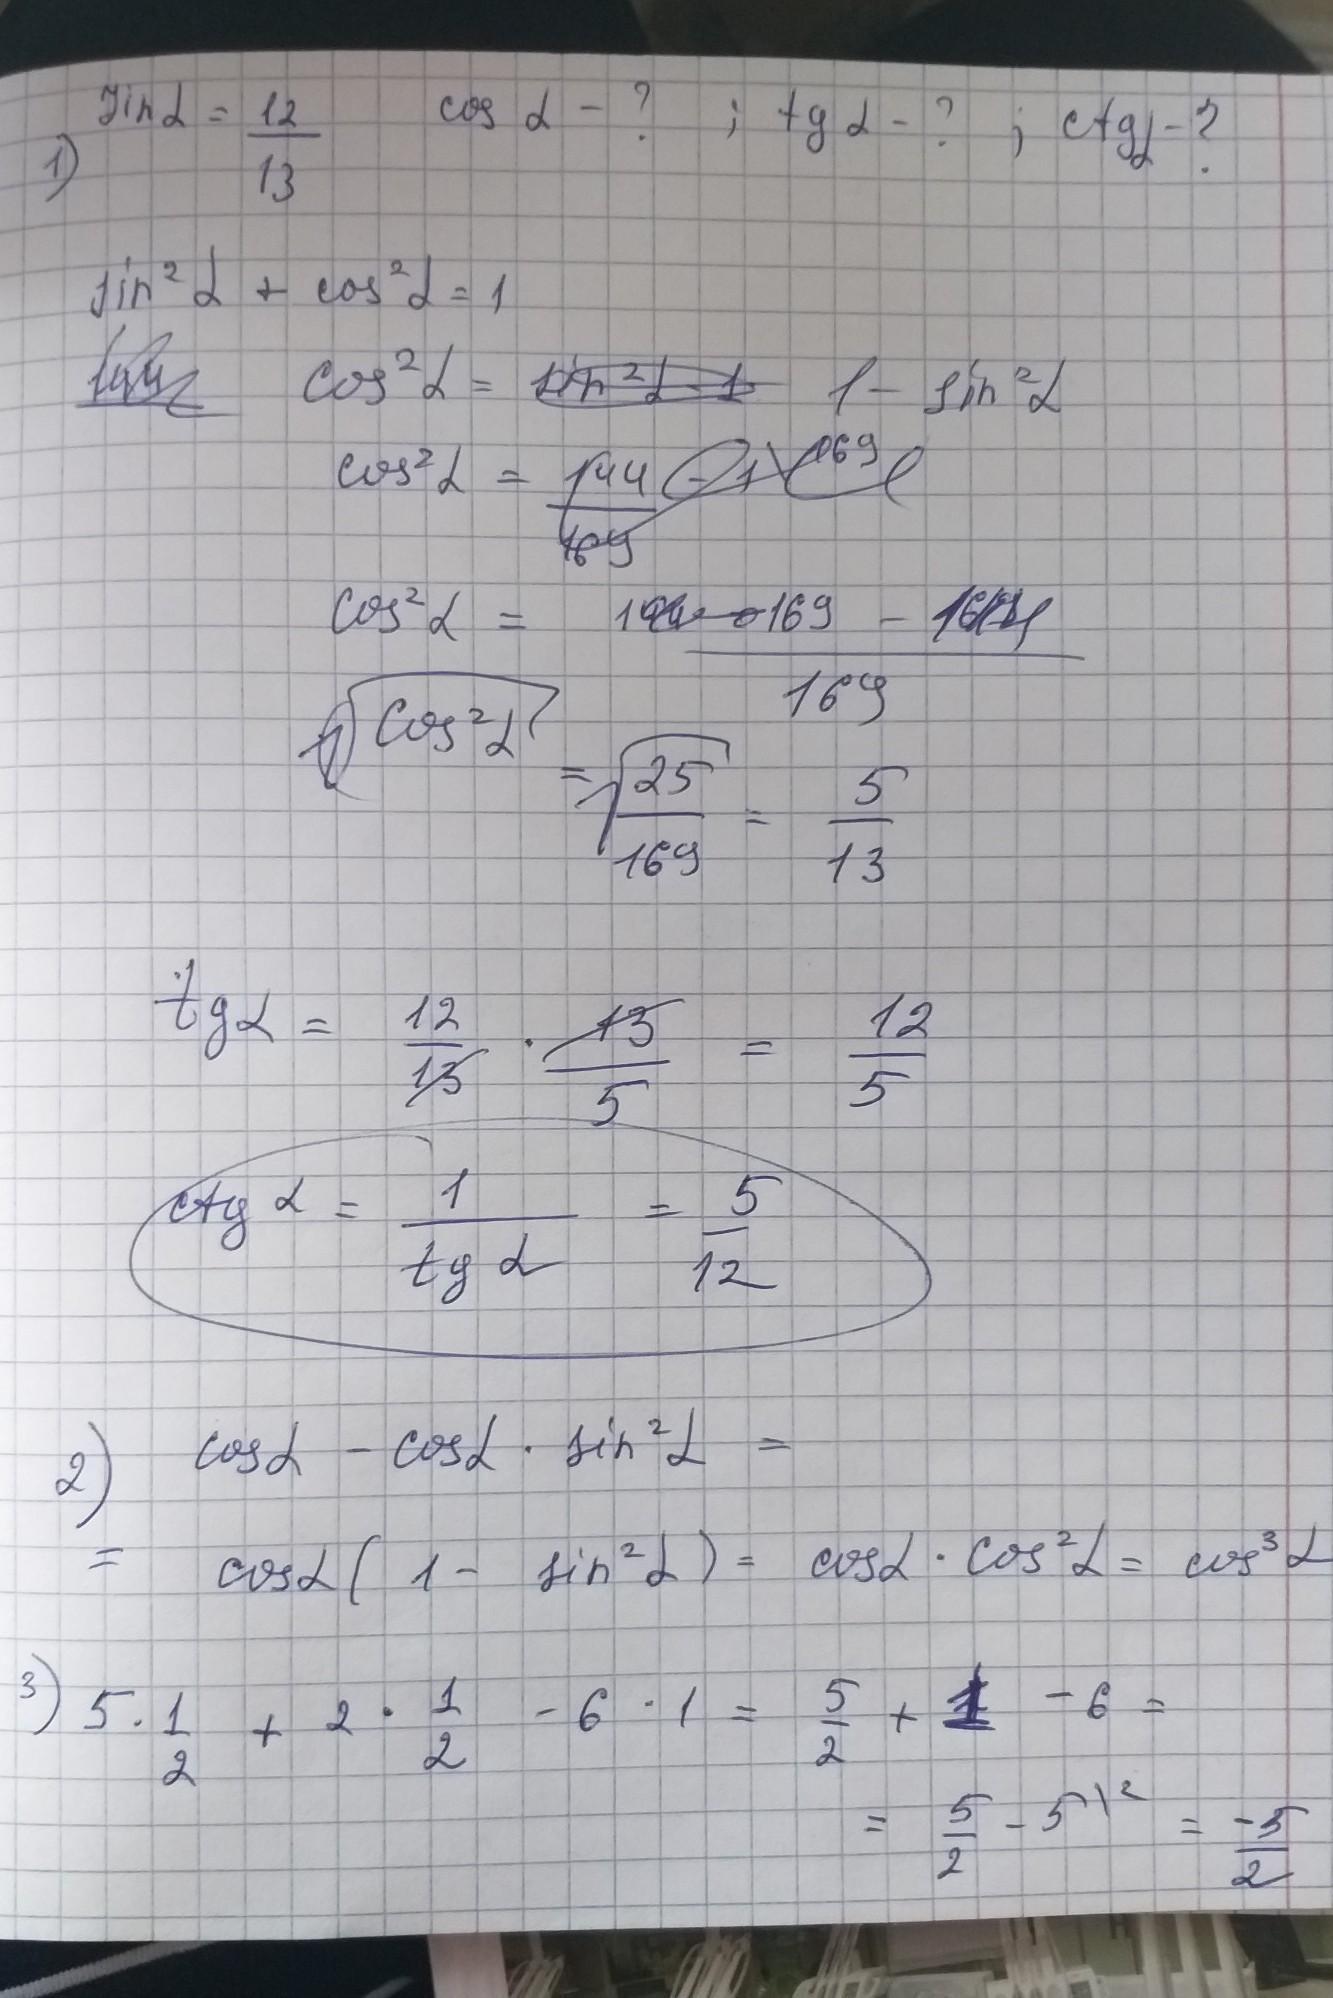 1) sin α = 12/13 cos α - ? ; tg α - ? ; ctg α - ?
sin²α + cos²α = 1
cos²α = 1 - sin²α
cos²α = 144/169 - 1 \ 169
cos²α = 169 - 144 / 169
√cos²α = √25/169 = 5/13
tg α = 12/13 · 13/5 = 12/5
ctg α = 1/tg α = 5/12
2) cos α - cos α · sin²α =
= cos α ( 1 - sin²α ) = cos α · cos²α = cos³α
3) 5 · 1/2 + 2 · 1/2 - 6 · 1 = 5/2 + 1 - 6 =
= 5/2 - 5 \ 2 = -5/2